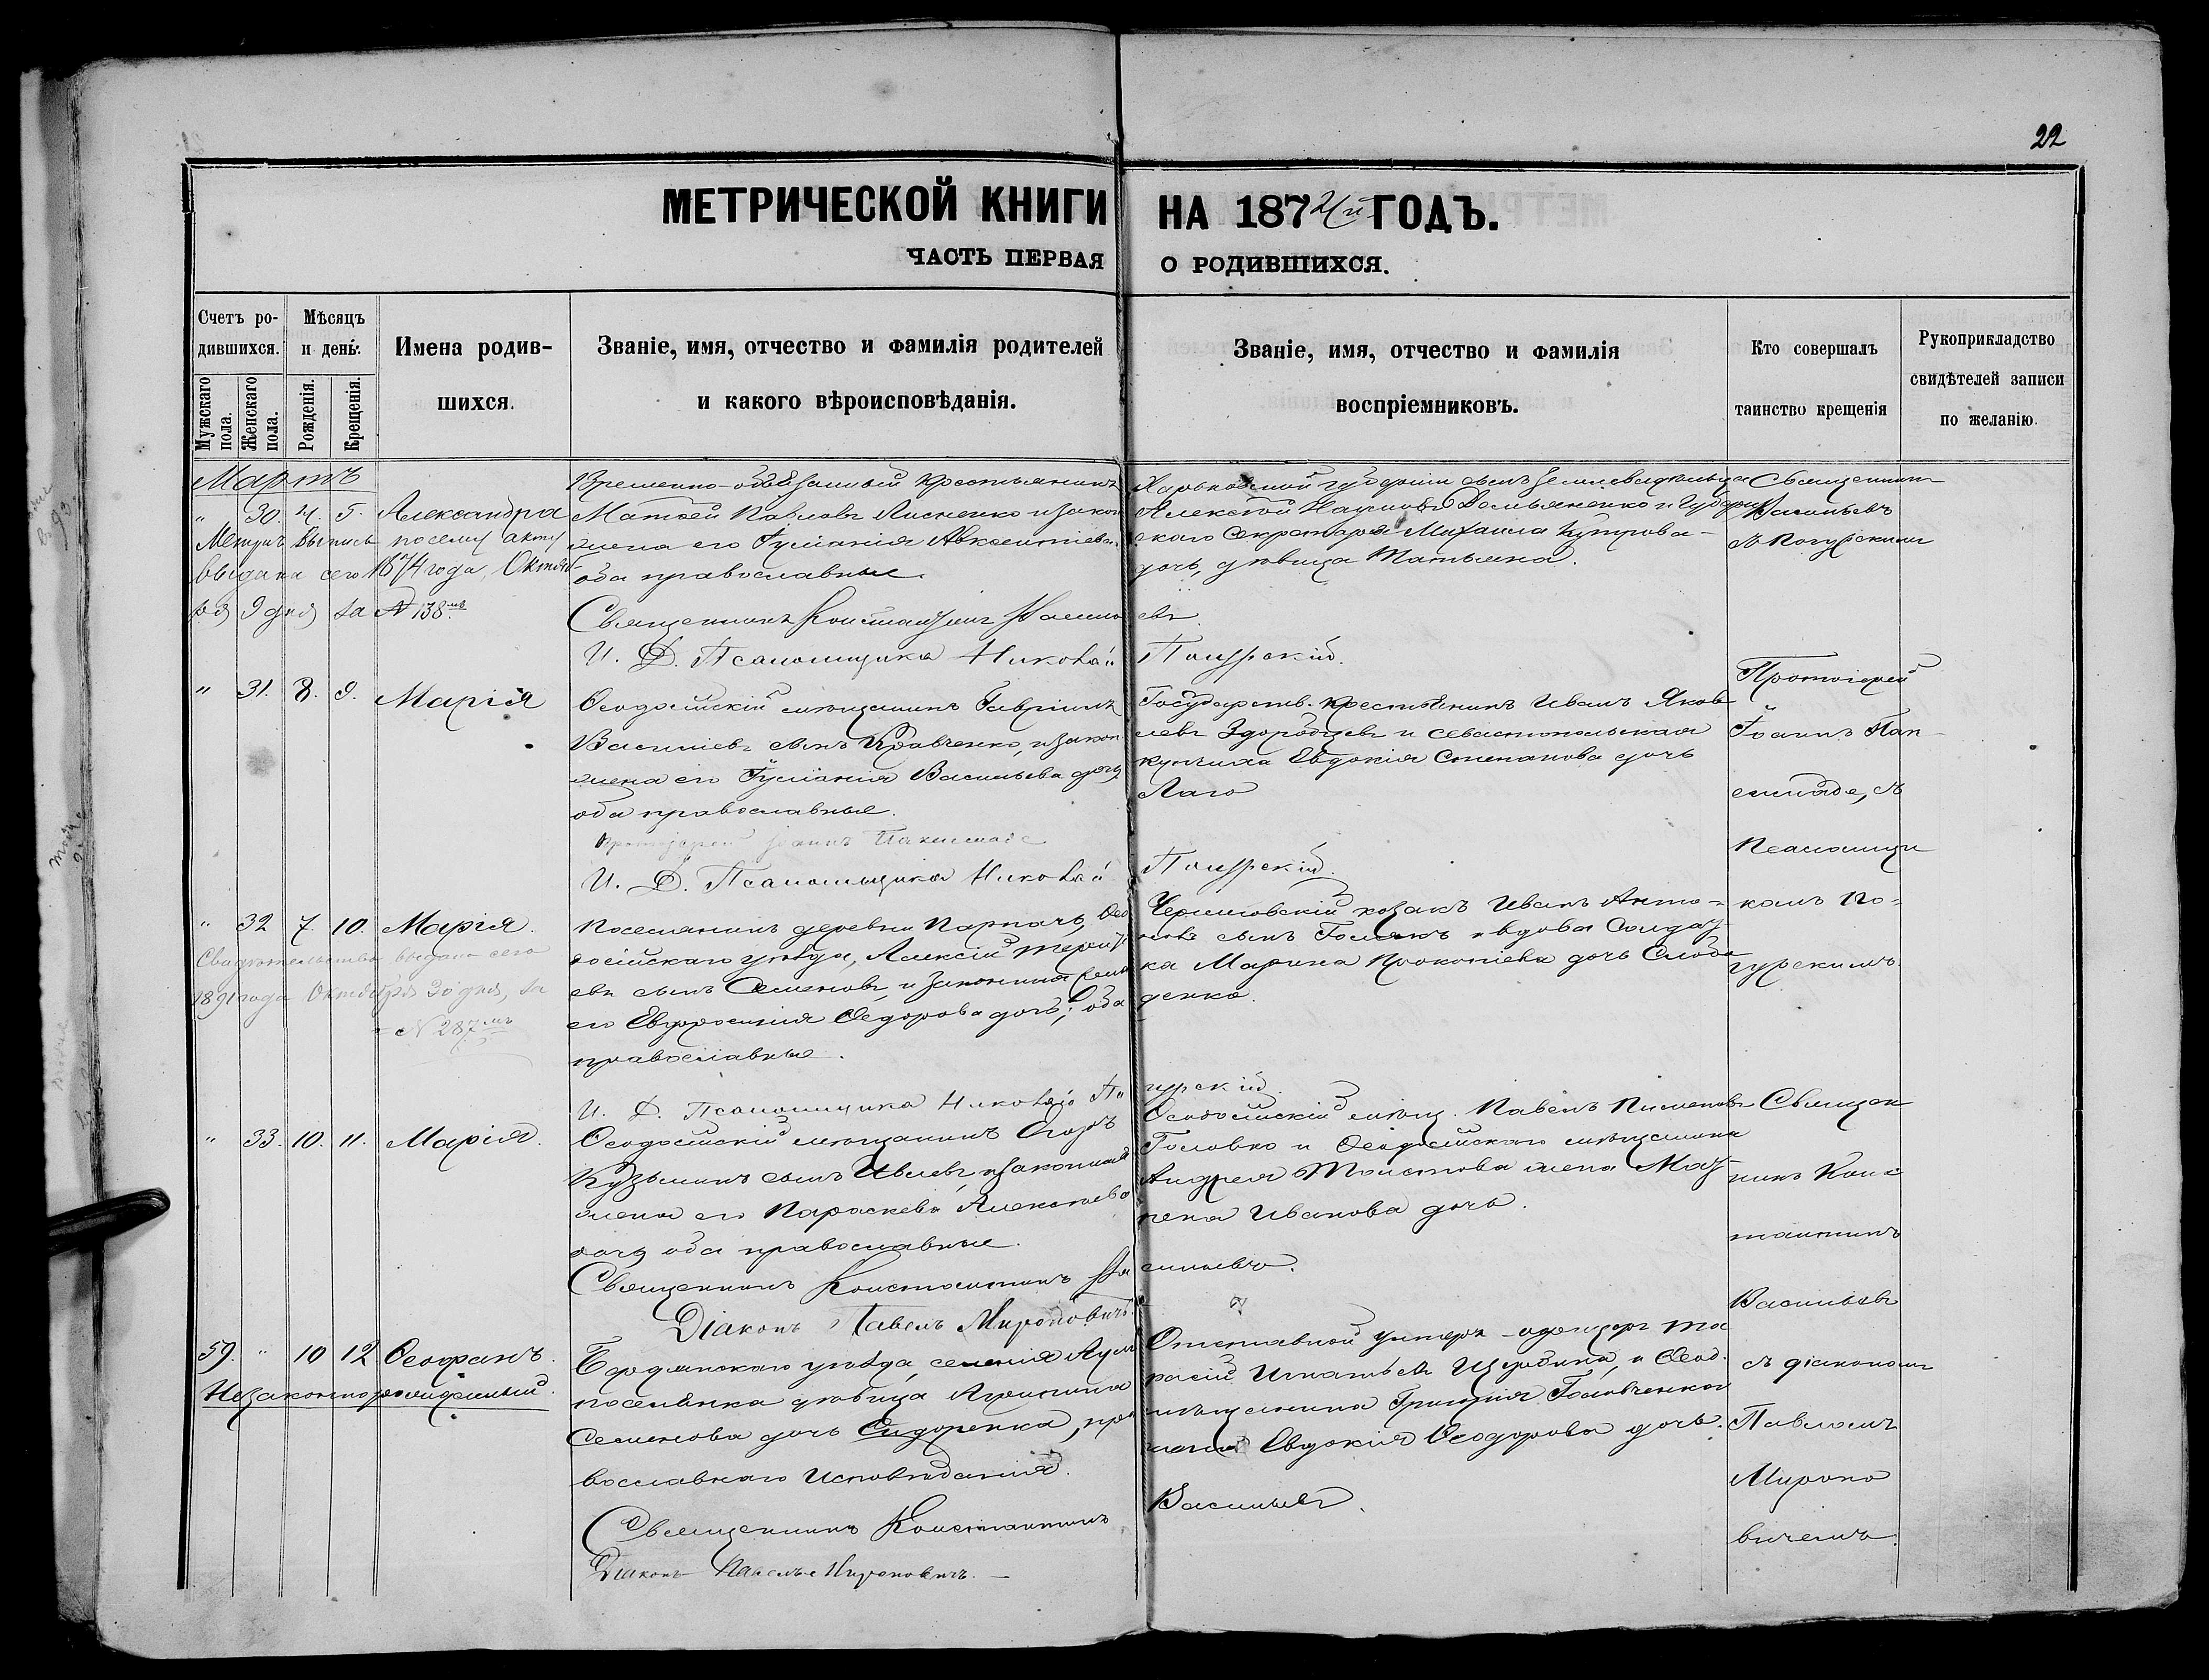 22
МЕТРИЧЕСКОЙ КНИГИ НА 1874й ГОДЪ.
ЧАСТЬ ПЕРВАЯ О РОДИВШИХСЯ.
Счетъ ро-
дившихся.
Мужскаго пола.
Женскаго пола.
Мѣсяцъ
и день.
Рожденія.
Крещенія.
Имена родив-
шихся.
Званіе, имя, отчество и фамилія родителей
и какого вѣроисповѣданія.
Званіе, имя, отчество и фамилія
воспріемниковъ.
Кто совершалъ
таинство крещенія
Рукоприкладство
свидѣтелей записи
по желанію.
Мартъ
" 30. 4. 5. Александра
Метрич. выпись по сему акту
выдана сего 1874 года, Октяб-
ря 9 дня за № 138мъ
Временно-обязанный крестьянинъ
Матѳей Павловъ Лисненко и закон.
жена его Іуліанія Авксентіева.
оба православные.
Священникъ Константинъ Василь
И. Д. Псаломщика Николай
Харьковской губерніи сынъ землевладѣльца
Алексѣй Наумовъ Демьяненко и Губерн
скаго Секретаря Михаила
дочь, дѣвица Татьяна.
евъ.
Погурскій.
Священникъ
Васильевъ
съ Погурскимъ
" 31. 8. 9. Марія
Ѳеодосійскій мѣщанинъ Гавріилъ
Василіевъ сынъ Кравченко, и закон.
жена его Іуліанія Васильева дочь
оба православные.
Протоіерей Іоаннъ
И. Д. Псаломщика Николай
Государств. крестьянинъ Иванъ Яков
левъ Здоровцевъ и севастопольская
купчиха Евдокія Степанова дочь
Лаго
Погурскій.
Протоіерей
Іоаннъ
съ
Псаломщи
комъ По-
гурскимъ.
" 32 7. 10. Марія.
Свидѣтельство выдано сего
1891 года Октября 30 дня, за
№ 287мъ
Поселянинъ деревни Парпачъ, Ѳео
досійскаго уѣзда, Алексій Терентi
евъ сынъ Семеновъ, и законная жена
его Евфросинія Ѳедорова дочь; оба
православные.
И. Д. Псаломщика Николай По
Черниговскій козакъ Иванъ Анто-
новъ сынъ и вдова Солдат
ка Марина Прокопіева дочь Слобо
денко.
гурскій
" 33. 10. 11. Марія.
Ѳеодосійскій мѣщанинъ
Кузьминъ сынъ Ивлевъ, и законная
жена его Параскева Алексѣева
дочь, оба православные.
Священникъ Константинъ Ва
Діаконъ Павелъ Мироновичъ.
Ѳеодосійскій мѣщ. Павелъ Пименовъ
Головко и Ѳеодосійскаго мѣщанина
Андрея Толстова жена Мат
рена Иванова дочь.
сильевъ.
Священ
никъ Конс
тантинъ
Васильевъ
съ діакономъ
Павломъ
Мироно
вичемъ.
59. " 10 12 Ѳеофанъ.
Незаконнорожденный.
Бердянскаго уѣзда, селенія
поселянка дѣвица Агрипина
Семенова дочь Сидоренко, пра
вославнаго исповѣданія.
Священникъ Константинъ
Діаконъ Павелъ Мироновичъ.
Отставной унтеръ-офицеръ Та
расій Игнатьевъ и Ѳеод.
мѣщанина Григорія Головченко
жена Евдокія Ѳеодорова дочь.
Васильевъ.